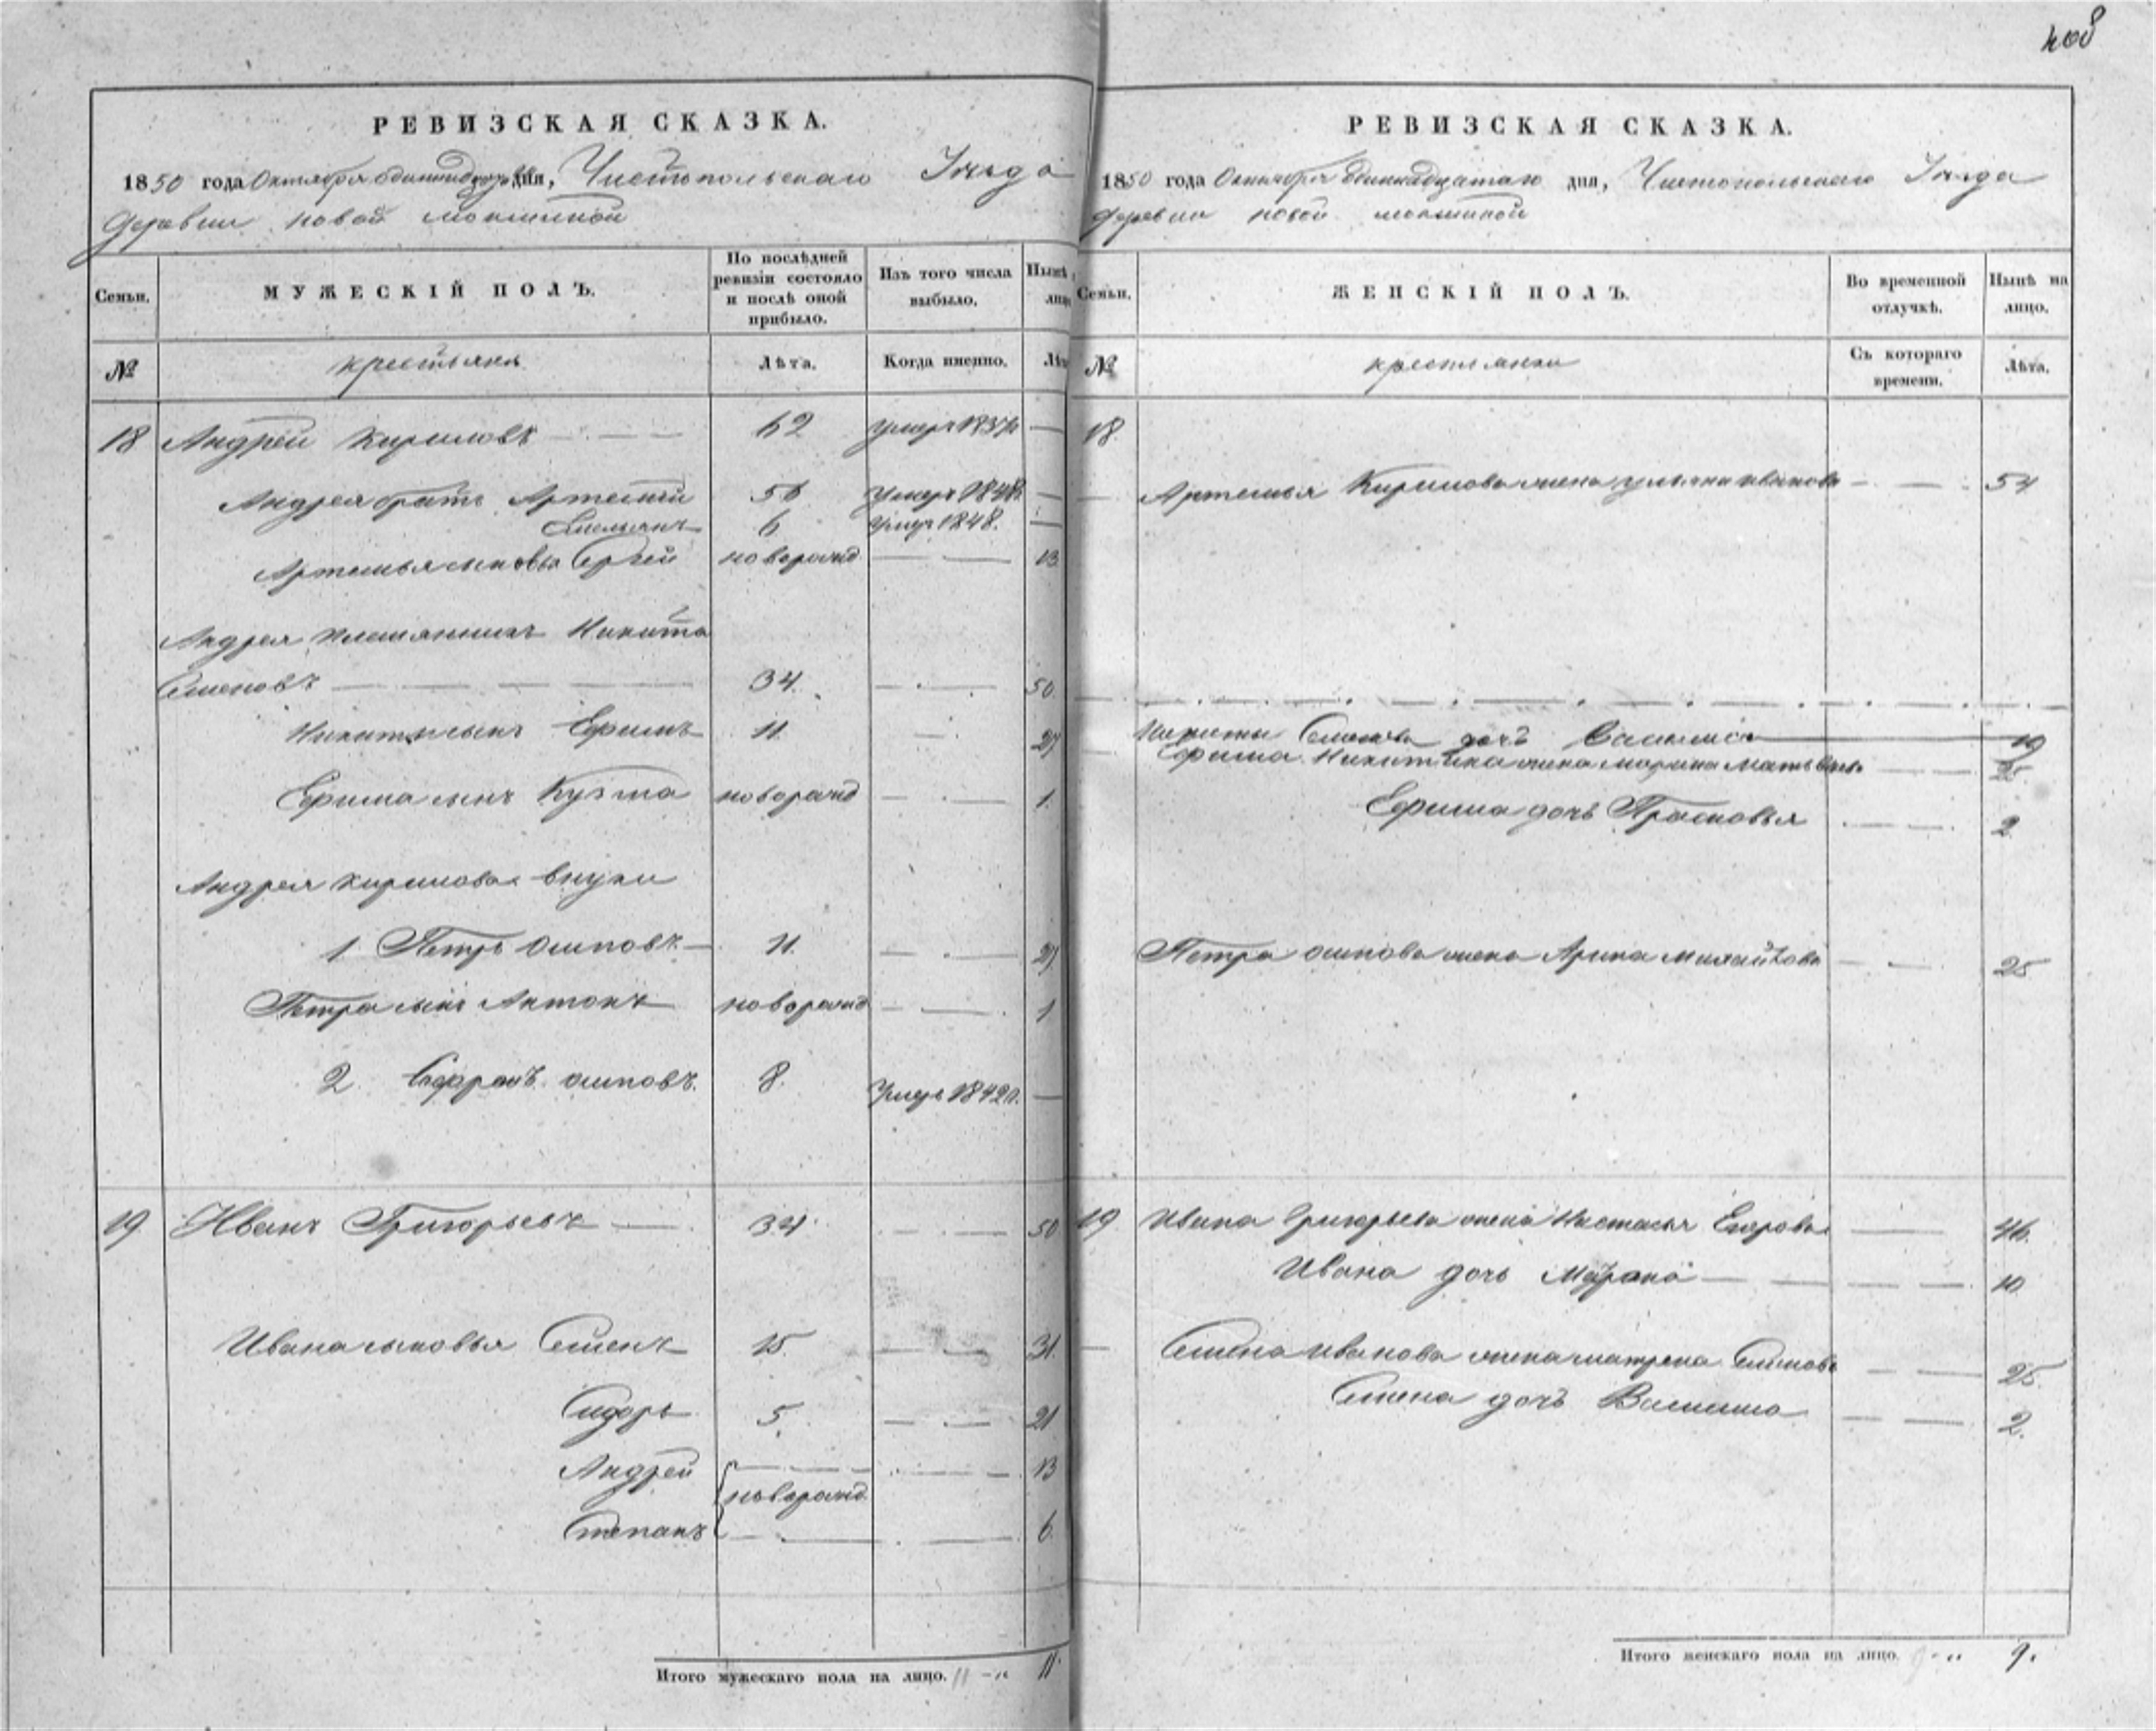 408
РЕВИЗСКАЯ СКАЗКА.
1850 года Октября одиннадцатаго дня, Чистопольскаго Уезда
деревни новой мокшиной
Семьи.
МУЖЕСКІЙ ПОЛЪ.
По послѣдней ревизіи состояло и послѣ оной прибыло.
Изъ того числа выбыло.
Нынѣ
лицо
№
крестьяне
Лѣта.
Когда именно.
Лѣт
18 Андрей Кириловъ 62
Андрея братъ Артемій 56 умеръ 1848
Емельянъ 6 умер 1848.
Артемья сыновья Сергей новорожд 13
Андрея племянникъ Никита
Семеновъ 34. 50.
Никиты сынъ Ефимъ 11. 27
Ефима сынъ Кузма новорожд 1.
Андрея Кирилова внуки
1 Петръ осиповъ 11. 27
Петра сынъ Антонъ новорожд 1
2. Сафронъ осиповъ. 8. умеръ 1842
19 Иванъ Григорьевъ 34 50
Ивана сыновья Семенъ 15. 31.
Сидоръ 5. 21
Андрей 13
новорожд
Степанъ 6.
Итого мужескаго пола на лицо. 11 11.
РЕВИЗСКАЯ СКАЗКА.
1850 года Октября одиннадцатаго дня, Чистопольскаго Уезда
деревни новой мокшиной
Семьи.
ЖЕНСКІЙ ПОЛЪ.
Во временной отлучкѣ.
Нынѣ на лицо.
№
крестьянки
Съ котораго времени.
Лѣта.
18.
Артемья Кирилова жена ульяна иванова 54
Никиты Семенова дочь 19
Ефима Никитина жена марина матвеева 25.
Ефима дочь Прасковья 2
Петра осипова жена Арина михайлова 25
19 Ивана Григорьева жена Настасья Егорова 46.
Ивана дочь 10
Семена иванова жена матрена 25.
Семена дочь 2.
Итого женскаго пола на лицо. 9 9.